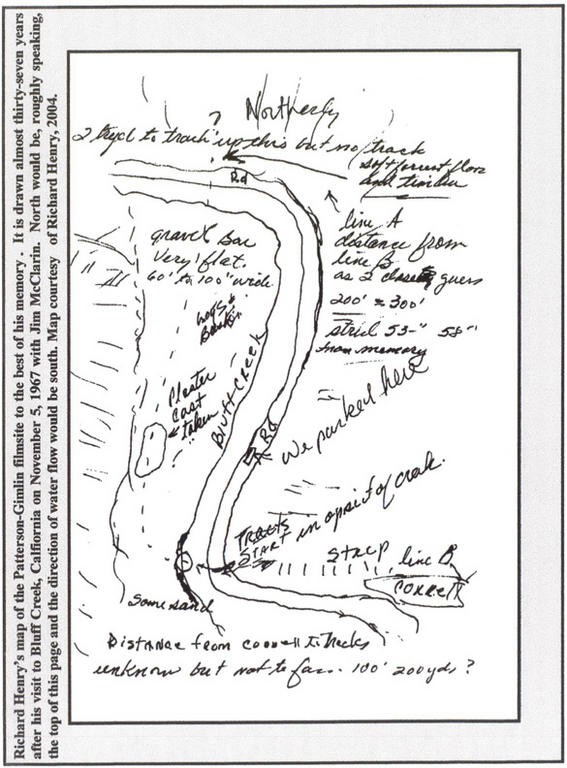 Richard Henry's map of the Patterson-Gimlin filmsite to the best of his memory . It is drawn almost thirty-seven years
after his visit to Bluff Creek, Calfiornia on November 5, 1967 with Jim McClarin. North would be, roughly speaking,
the top of this page and the direction of water flow would be south. Map courtesy of Richard Henry, 2004.
?
Northerly
2 tryd to track up this but no track
soft forrest floor
and timber
Rd
line A
distance from
line B
as 2 closest guess
200' = 300'
strid 53-" 58"
from memory
gravel bar
very flat.
60' to 100" wide
logs &
Plaster
cast
taken
Bluff CREEK
Rd
We parked here
TRACKS
START on opsit of creek.
steep line B
Some sand
Distance from to tracks
unknow but not to far. 100' 200yds ?